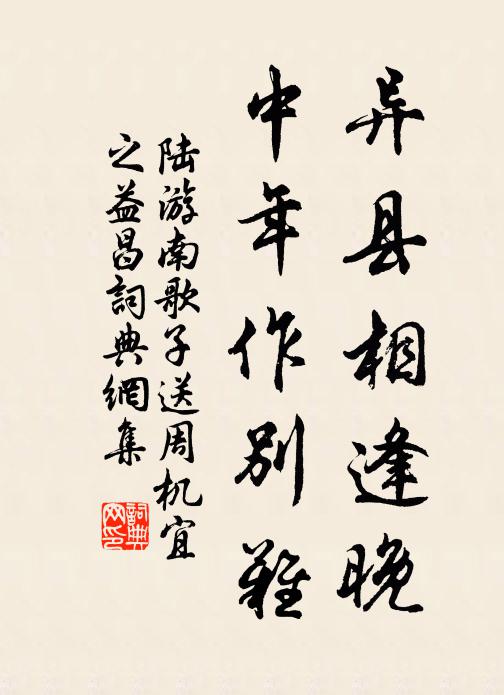 异县相逢晚
中年作别难
陆游南歌子送周机宜
之益昌詞典網集
詞典
网印